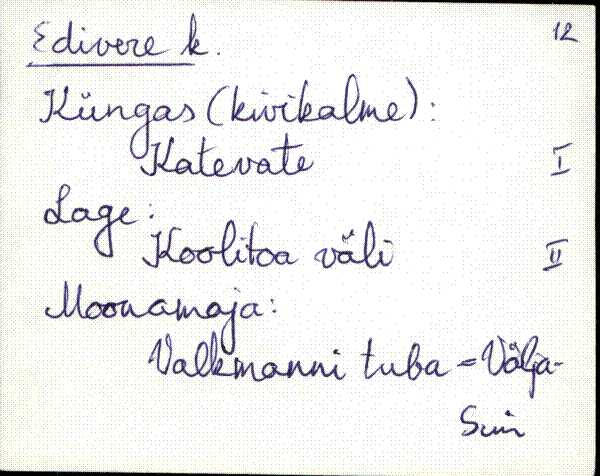 Edivere k. 12
Küngas (kivikalme):
Katevate I
Lage:
Koolitoa väli II
Moonamaja:
Valkmanni tuba = Välja-
Suin